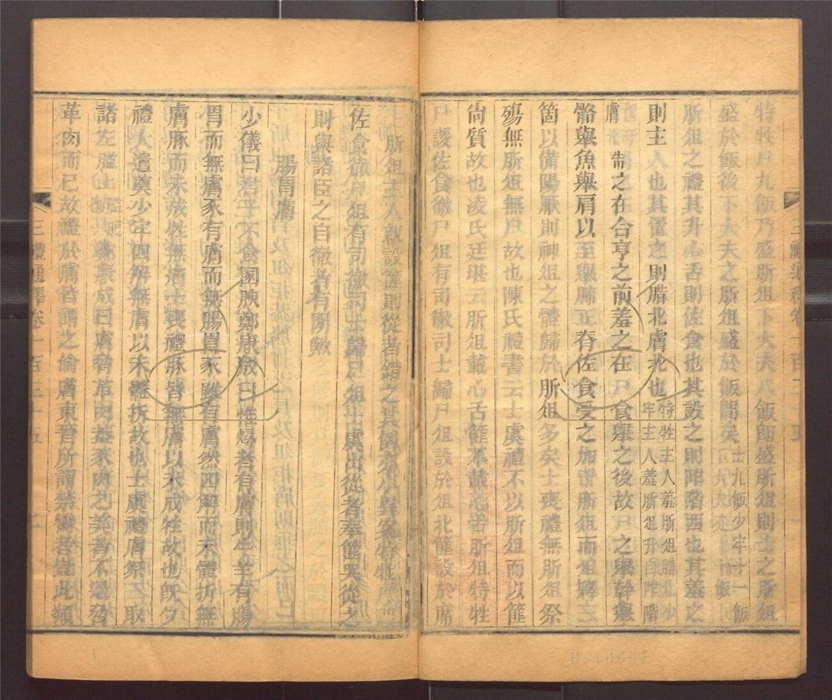 特牲尸九飯乃盛肵俎下大夫八飯即盛肵俎則士之肵俎
盛於飯後下大夫之肵俎盛於飯間矣士九飯少牢十一飯
肵俎之禮其升心舌則佐食也其設之則阼階西也其羞之
則主人也其置之則腊北膚北也特牲主人羞肵俎
牢主人羞肵俎升自阼階
制之在合亨之前羞之在尸食舉之後故尸之舉幹舉
骼舉魚舉肩以至舉肺正脊佐食受之加于肵俎而俎釋三
箇以備陽厭則神俎之體歸於肵俎多矣士喪禮無肵俎祭
殤無肵俎無尸故也陳氏禮書云士虞禮不以肵俎而以篚
尚質故也凌氏廷堪云肵俎載心舌篚不載心舌肵俎特牲
尸謖佐食徹尸俎有司徹司士歸尸俎設於俎北篚設於席
佐食徹尸俎有司徹司士歸尸俎士虞出從者奉篚哭從之
則與諸臣之自徹者有間歟
腸胃膚
少儀曰君子不食圂腴鄭康成曰惟燖者有膚則牛羊有腸
胃而無膚豕有膚而無腸胃豕雖有膚然四解而未體折無
膚豚而未成牲無膚士喪禮豚皆無膚以未成牲故也既夕
禮人遣奠少牢四解無膚以未體折故也士虞禮膚祭三取
諸左膉上鄭康成曰膚脅革肉蓋豕肉之美者不過脅
革肉而已故禮於膚皆謂之倫膚東晉所謂禁臠者此類
三禮通釋卷一百三十五